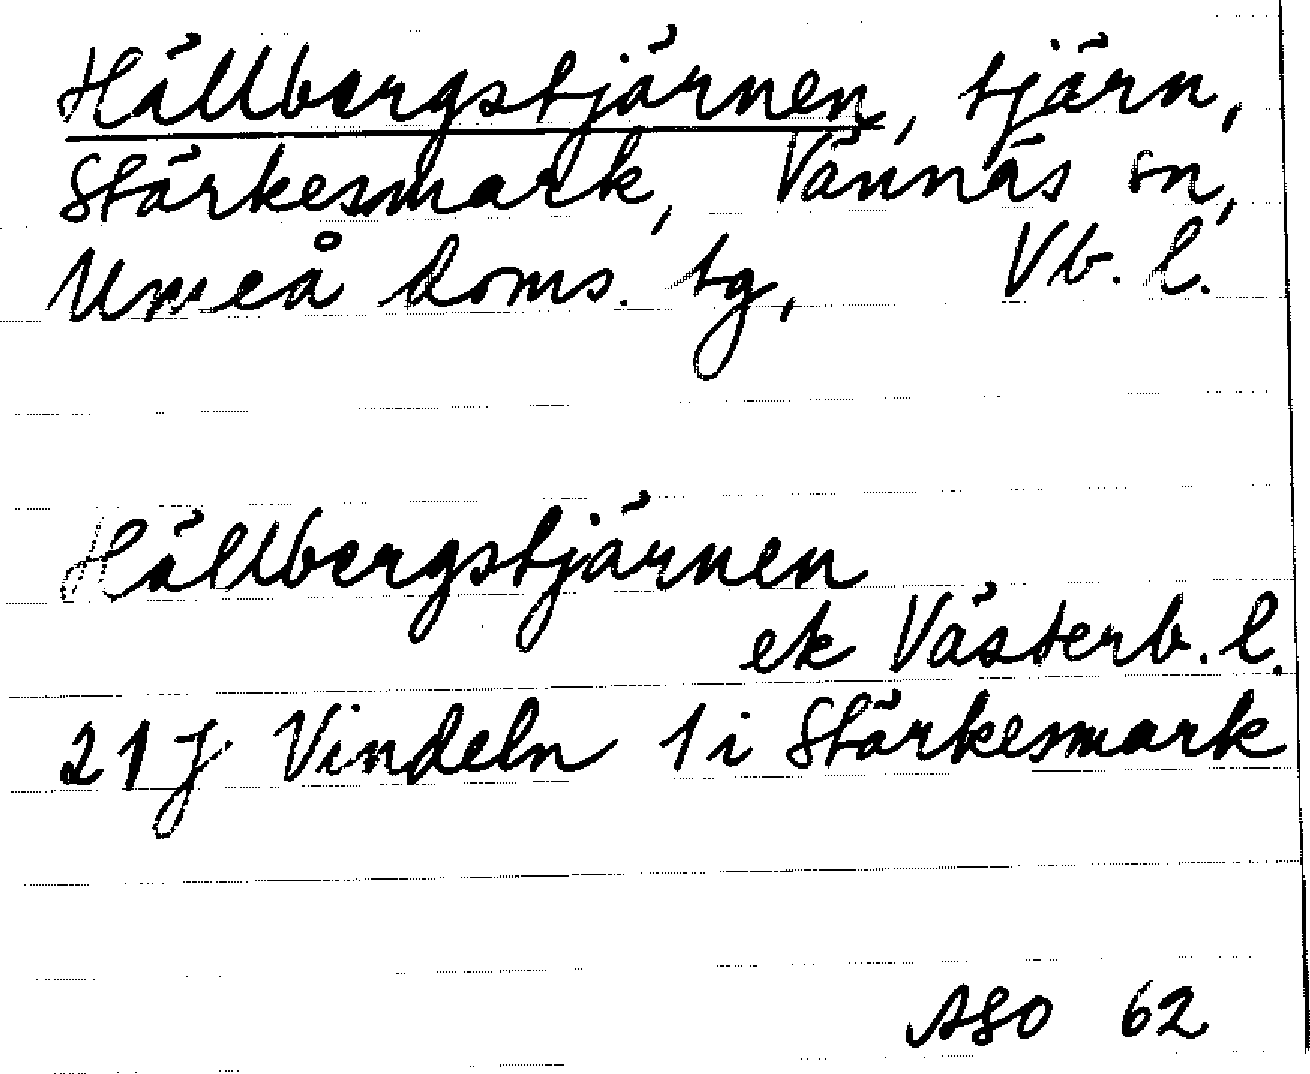 Hällbergstjärnen, tjärn,
Stärkesmark, Vännäs sn,
Umeå doms. tg, Vb. l.
Hällbergstjärnen
ek Västerb. l.
21 J Vindeln 1 i Stärkesmark
ASO 62